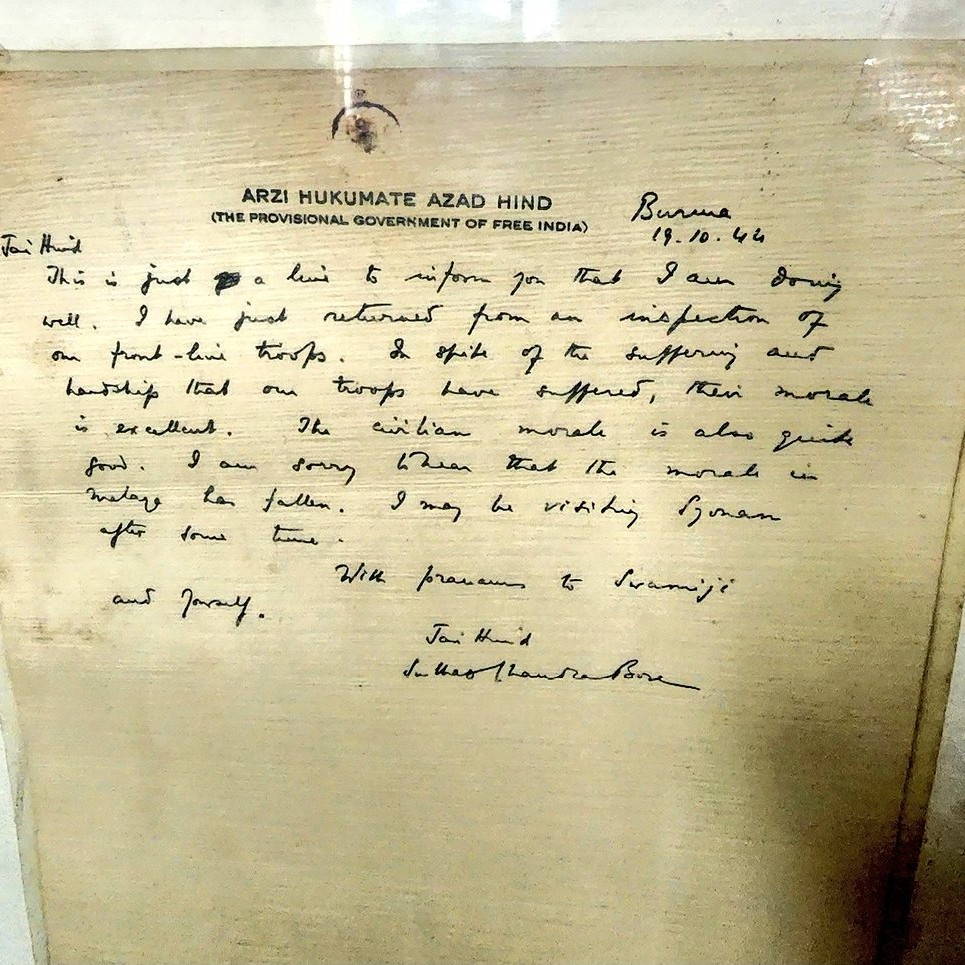 ARZI HUKUMATE AZAD HIND
(THE PROVISIONAL GOVERNMENT OF FREE INDIA)
Burma
19.10.44
Jai Hind
This is just a line to inform you that I am doing
well. I have just returned from an inspection of
our front-line troops. In spite of the suffering and
hardship that our troops have suffered, their morale
is excellent. The civilian morale is also quite
good. I am sorry to hear that the morale in
Malaya has fallen. I may be visiting Syonan
after some time.
With pranams to Swamiji
and yourself.
Jai Hind
Subhas Chandra Bose